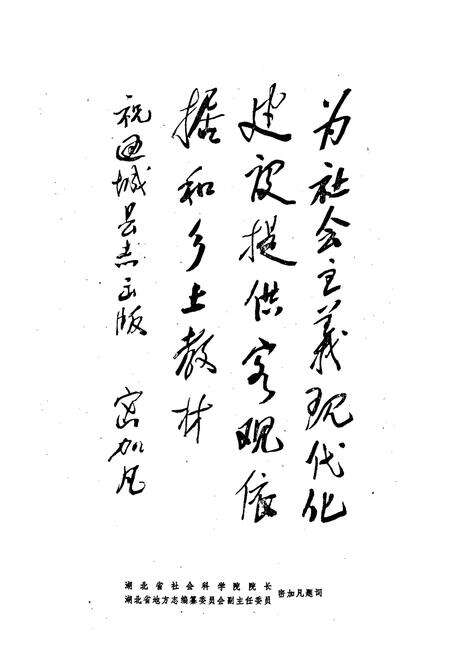 为社会主義现代化
建设提供客观依
据和乡土教材
祝通城县志出版
密加凡
湖北省社会科学院院长
湖北省地方志编纂委员会副主任委员
密加凡题词